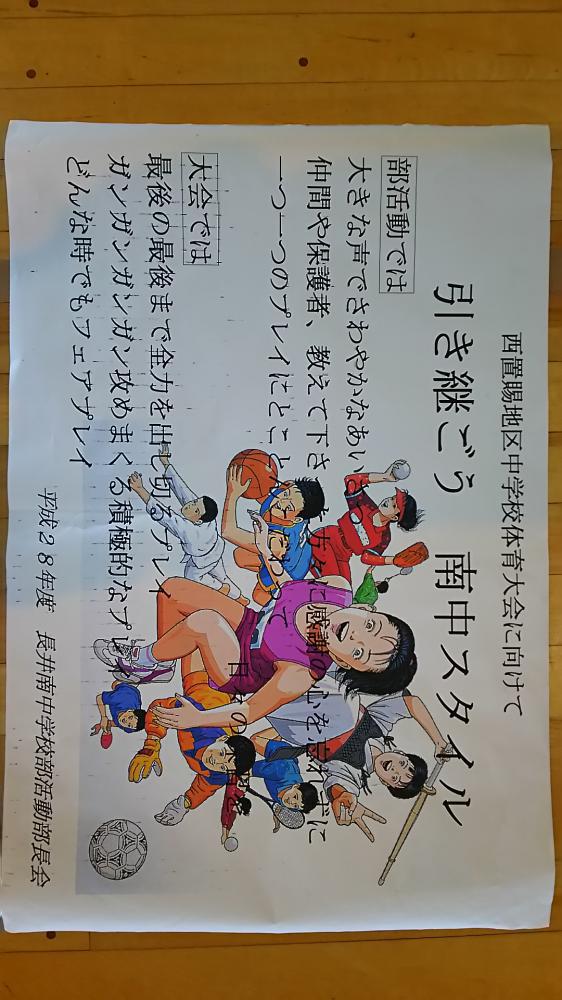 西置賜地区中学校体育大会に向けて
引き継ごう 南中スタイル
部活動では
大きな声でさわやかなあい
仲間や保護者、教えて下さ 方々に感謝の心を忘れずに
一つ一つのプレイにとこと
大会では
最後の最後まで全力を出し切るプレイ
ガンガンガンガン攻めまくる積極的なプレ
どんな時でもフェアプレイ
平成28年度 長井南中学校部活動部長会